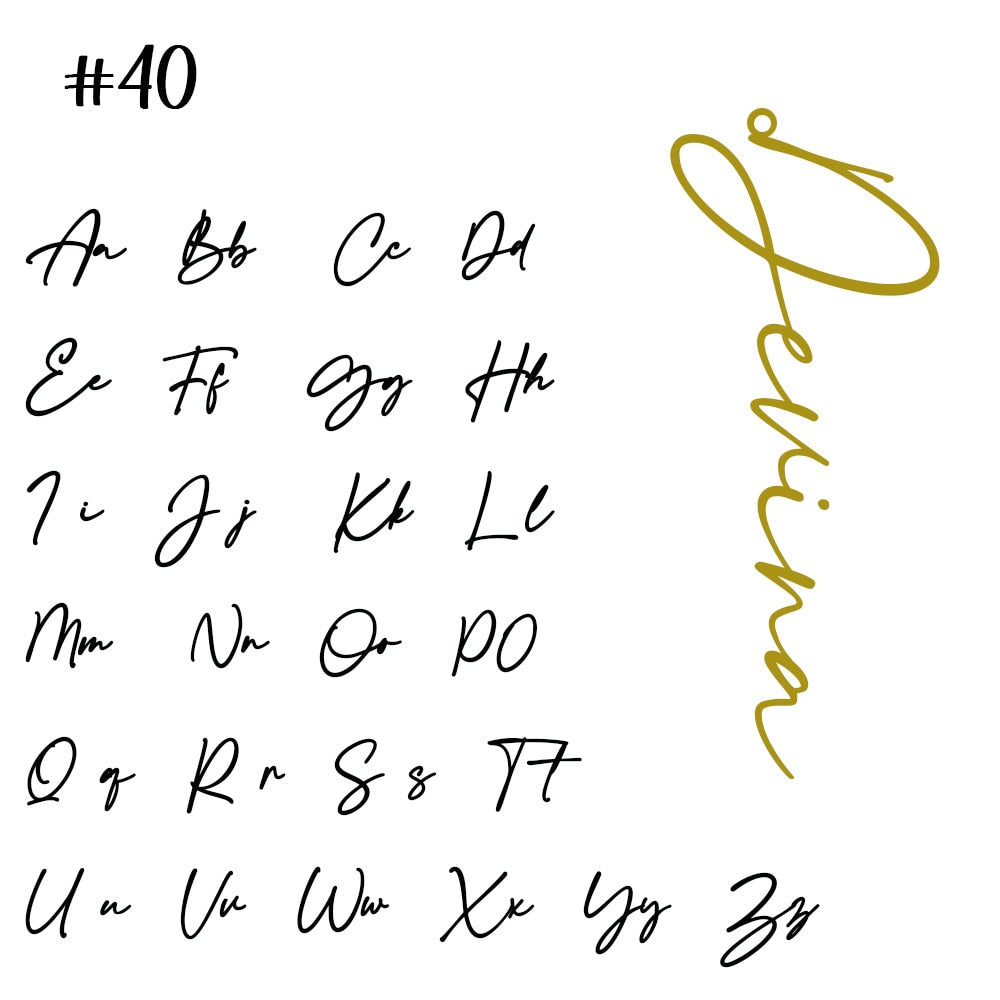 #40
Devina
Aa Bb Cc Dd
Ee Ff Gg Hh
I i J j Kk L l
Mm Nn Oo PO
Q q R r S s Tt
U u Vv Ww Xx Yy Zz